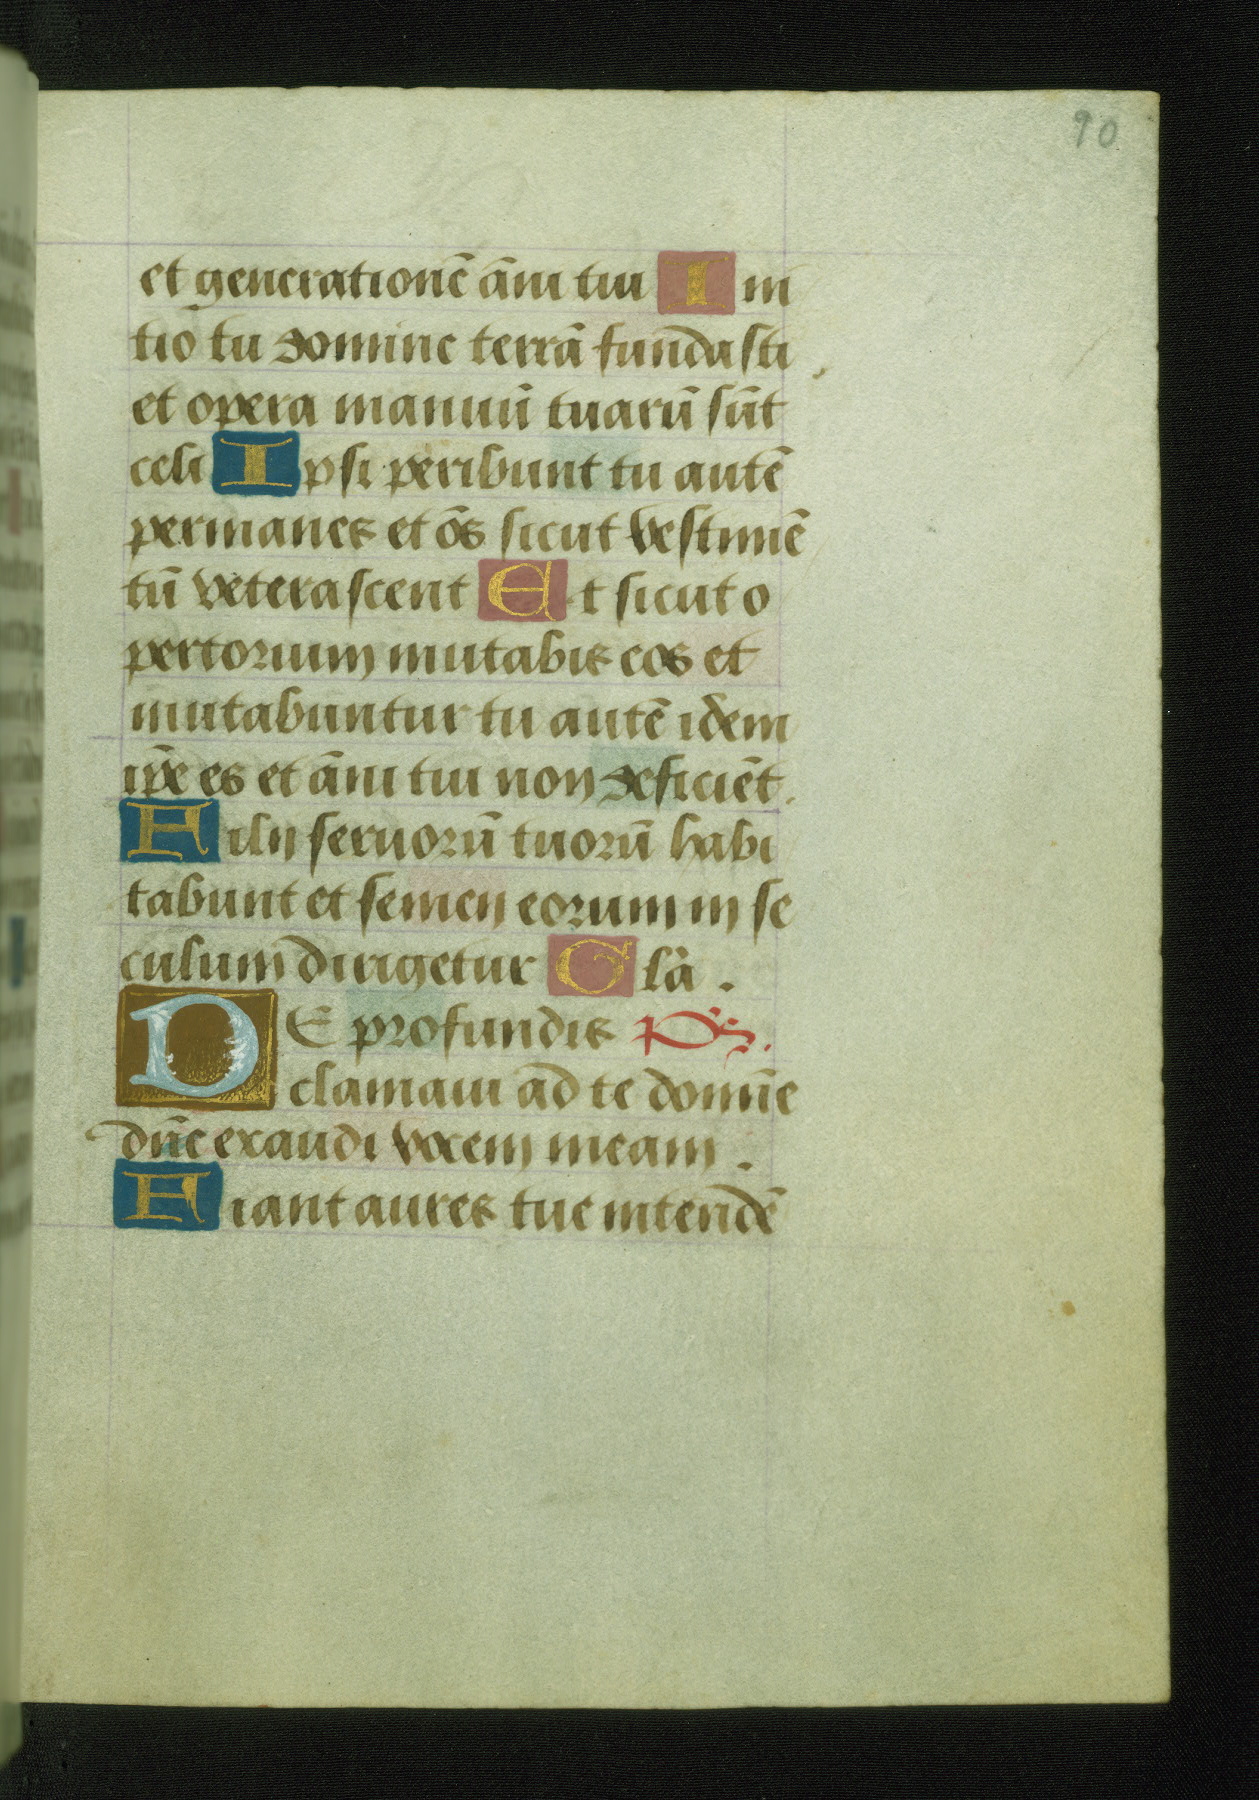 90
et generationē āni tui In
tio tu domine terrā fundasti
et opera manuū tuarū sūt
celi Ipsi peribunt tu autē
permanes et oēs sicut vestimē
tū veterascent Et sicut o
pertorium mutabis eos et
mutabuntur tu autē idem
ip̄e es et āni tui non deficiēt.
Filij seruorū tuorū habi
tabunt et semen eorum in se
culum dirigetur Glā.
DE profundis p̄s.
clamaui ad te domīe
dn̄e exaudi vocem meam.
Fiant aures tue intendē